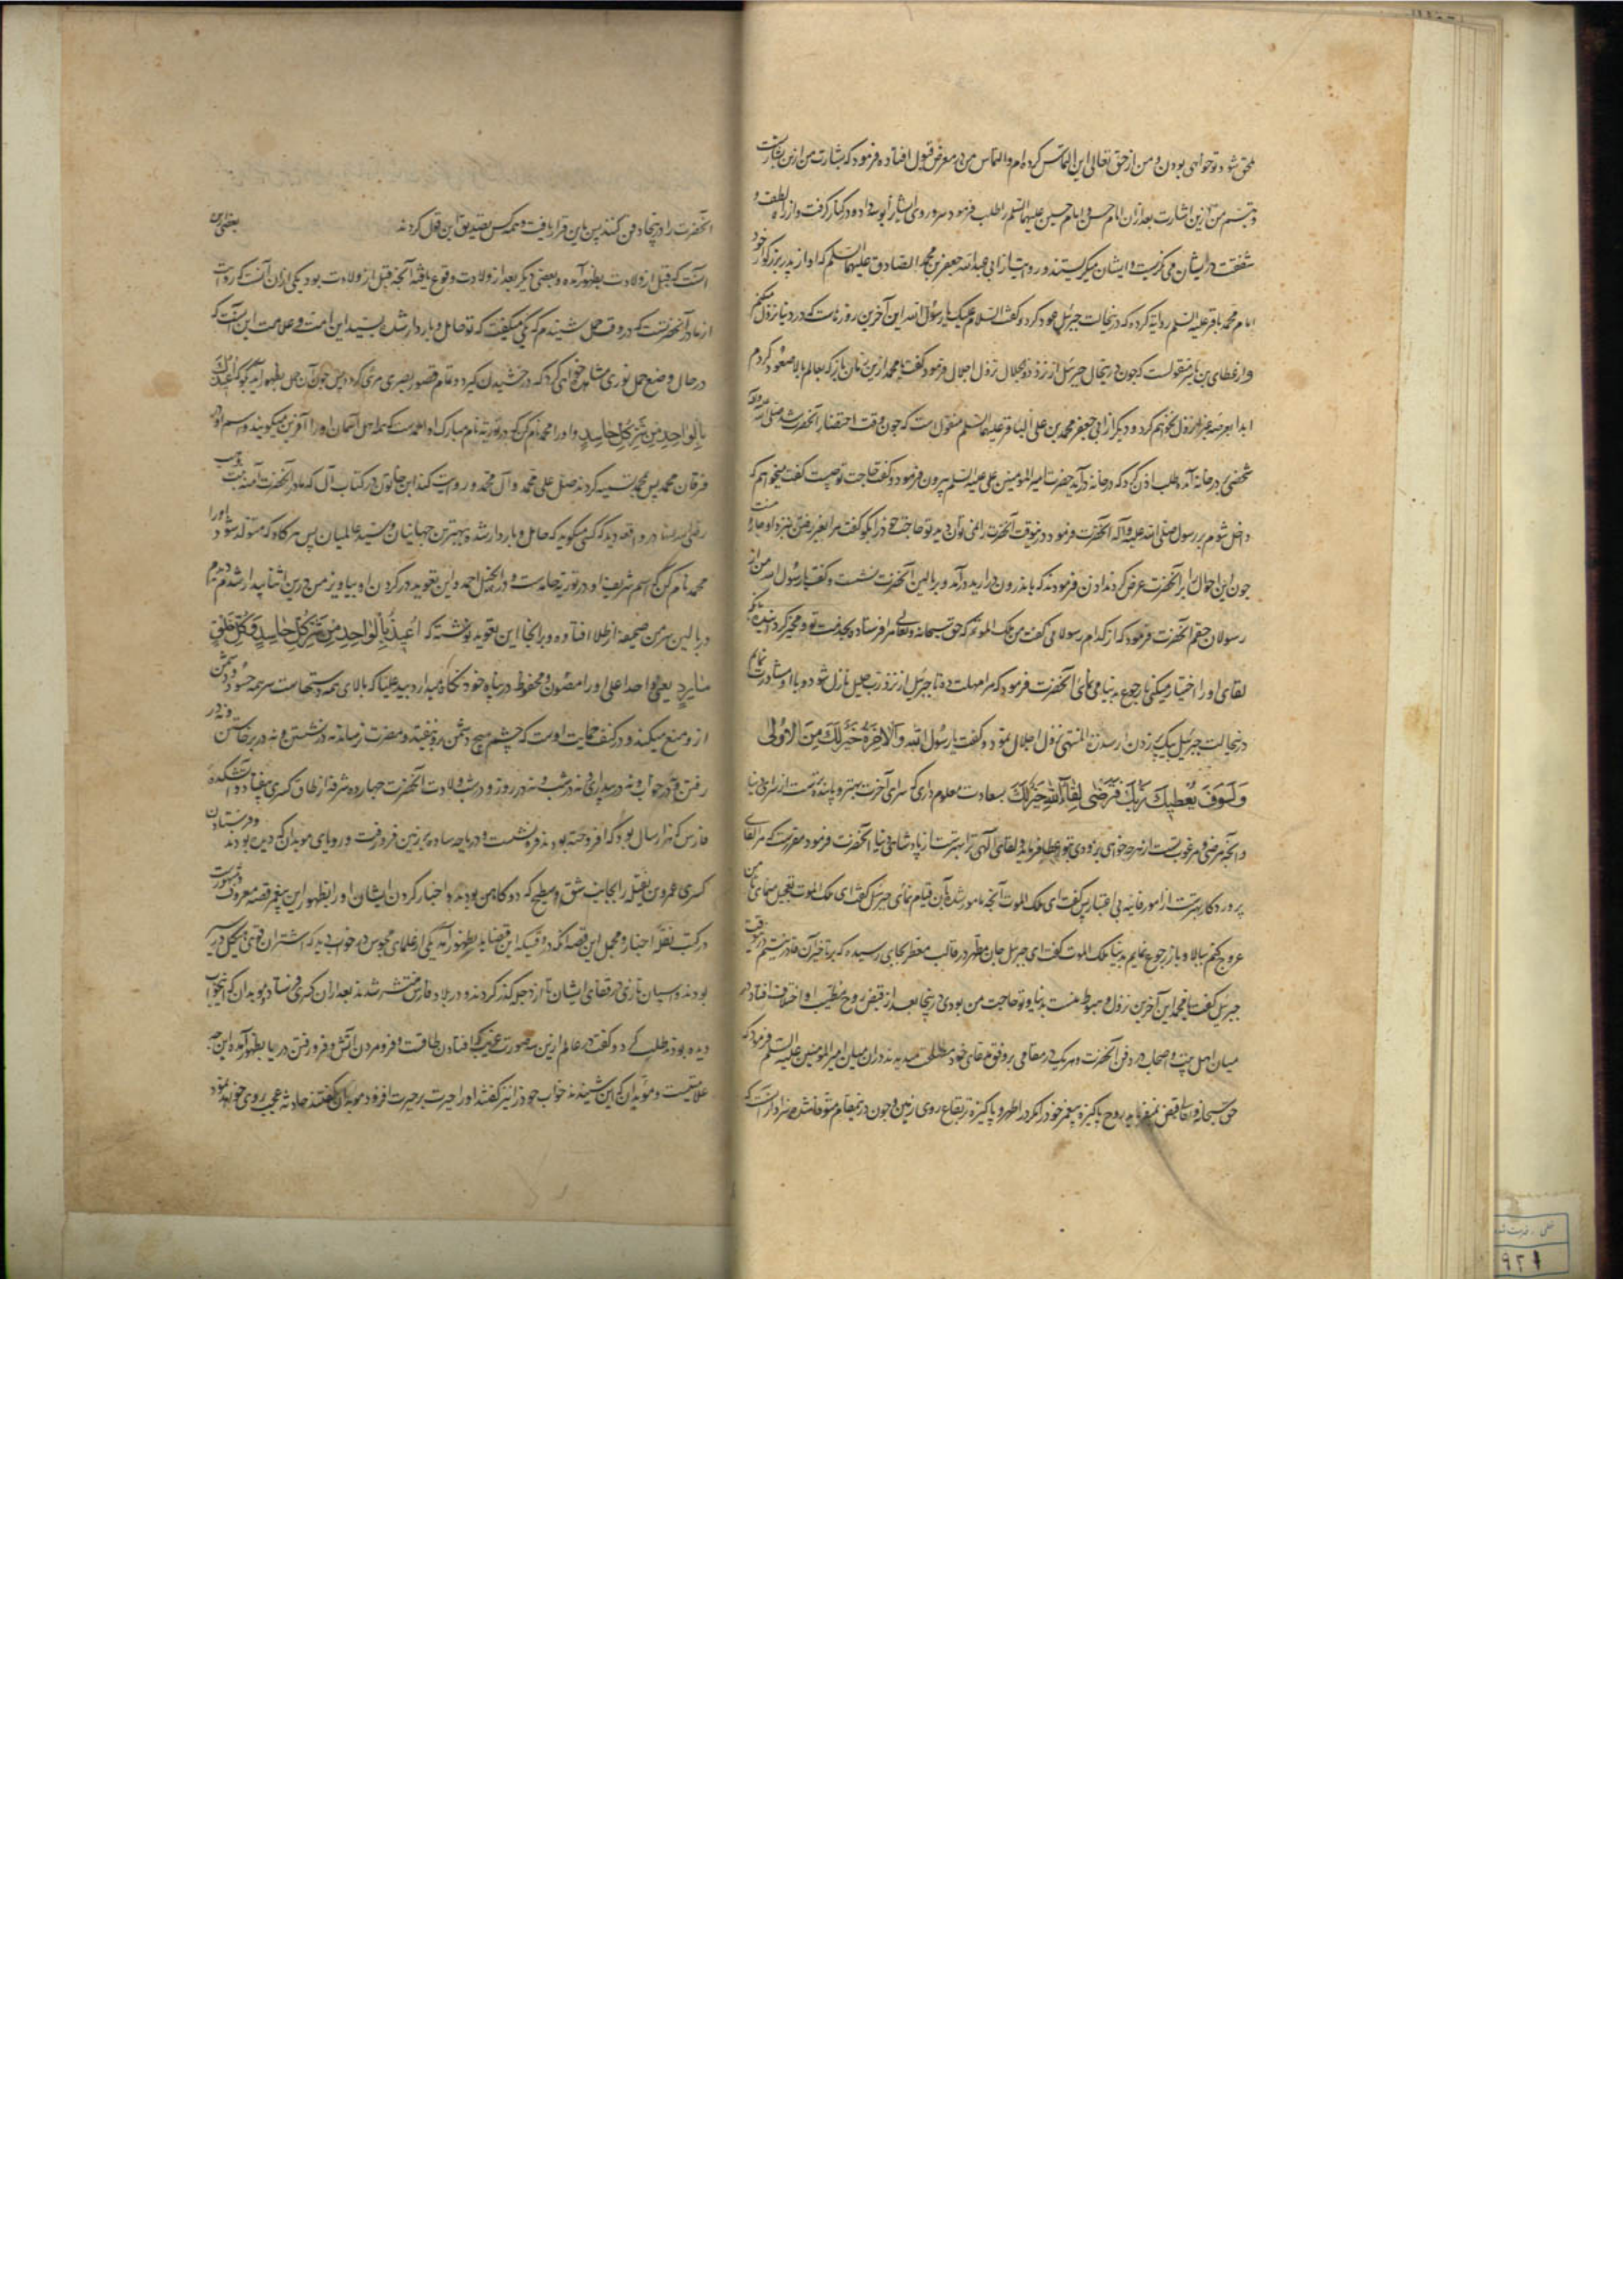 ملحق شود تو خواهی بودن و من از حق تعالی این التماس کرده‌ام و التماس من در معرض قبول افتاده فرمود که بشارت من ازین بشارت
و تبسم من ازین اشارت بعد ازان امام حسن و امام حسین علیهما السلم را طلب فرمود سر و روی ایشان را بوسه داده در کنار گرفت و از راه لطف و
شفقت در ایشان می نگریست و ایشان میگریستند و روایت از ابی عبدالله جعفر بن محمد الصادق علیهما السلم که او از پدر بزرگوار خود
امام محمد باقر علیه السلم روایة کرده که درینحالت جبرئیل عود کرد و گفت السلام علیک یا رسول الله این آخرین روزیست که در دنیا نزول میکنم
و از عطای بن یاسر منقولست که چون در ینحال جبرئیل از نزد ذوالجلال نزول اجلال فرمود گفت یا محمد ازین زمان باز که بعالم بالا صعود کردم
ابدا بعرصه غبرا نزول نخواهم کرد و دیگر از ابی جعفر محمد بن علی الباقر علیهما السلم منقول است که چون وقت احتضار آنحضرت شد صلی الله علیه و آله
شخصی بر در خانه آمد و طلب اذن کرد که در خانه درآید حضرت امیر المومنین علی علیه السلم بیرون فرمود و گفت حاجت تو چیست گفت میخواهم که
داخل شوم بر رسول صلی الله علیه و آله آنحضرت فرمود درینوقت آنحضرت را نمی توان دید تو حاجت خود را بگو گفت مرا بغیر رفتن نزد او چاره نیست
چون این احوال را بر آنحضرت عرض کردند اذن فرمودند که باندرون درآرید درآمد و بر بالین آنحضرت نشست و گفت یا رسول الله من از
رسولان حقم آنحضرت فرمود که از کدام رسولا می گفت من ملک الموتم که حق سبحانه و تعالی مرا فرستاده بخدمت تو و مخیر گردانیده که
لقای او را اختیار میکنی یا رجوع بدنیا می نمائی آنحضرت فرمود که مرا مهلت ده تا جبرئیل از نزد رب جلیل نازل شود و با او مشاورت نمایم
درینحالت جبرئیل بیک پر زدن از سدرة المنتهی نزول اجلال نمود و گفت یا رسول الله وَالآخِرَةُ خَیْرٌ لَکَ مِنَ الْاُولی
وَلَسَوْفَ یُعْطِیکَ رَبُّکَ فَتَرْضی لِقاءُ اللهِ خَیْرٌ لَکَ بسعادت معلوم داری که سرای آخرت بهتر و پاینده تر است از سرای دنیا
و آنچه مرضی و مرغوب تست از هر چه خواهی بزودی بتو عطا فرماید و لقای الهی ترا بهتر است از پادشاهی دنیا آنحضرت فرمود مقررست که مرا لقای
پروردگار بهترست از امور فانیه بی اعتبار پس گفت ای ملک الموت آنچه مامور شدهٔ بآن قیام نمای جبرئیل گفت ای ملک الموت تعجیل منمای تا من
عروج کنم ببالا و باز رجوع نمایم بدنیا ملک الموت گفت ای جبرئیل جان مطهر در قالب معطر بجایی رسیده که بر تاخیر آن قادر نیستم درینوقت
جبرئیل گفت یا محمد این آخرین نزول و هبوط منست بدنیا و تو حاجت من بودی درینجا بعد از قبض روح مطیب او اختلاف افتاد در
میان اهل بیت و اصحاب در دفن آنحضرت و هر یک در مقامی بر وفق مدعای خود مصلحت میدیدند دران میان امیر المومنین علیه السلم فرمود که
حق سبحانه و تعالی قبض نمیفرماید روح پاکیزه پیغمبر خود را مگر در اطهر و پاکیزه تر بقاع روی زمین و چون درینمقام متوفا شده سزاوار آنست که
آنحضرت را درینجا دفن کنند پس باین قرار یافت و همه کس بتصدیق این قول کردند بعضی ازین
آنست که قبل از ولادت بظهور آمده و بعضی دیگر بعد از ولادت وقوع یافته آنچه قبل از ولادت بود یکی ازان آنست که روایت
از مادر آنحضرتست که در وقت حمل شنیدم که یکی میگفت که تو حامل و باردار شدی بسید این امت و علامت این آنست که
در حال وضع حمل نوری مشاهده خواهی کرد که درخشیدن گیرد و تمام قصور بصری مرئی گردد پس چون آن حمل بظهور آید بگو که اُعیذُکَ
بِالْواحِدِ مِنْ شَرِّ کُلِّ حاسِدٍ و او را محمد نام کن که در توریة نام مبارک او احمدست که جمله اهل آسمان او را آفرین میگویند و اسم او در
فرقان محمد پس محمد تسمیه کردند صل علی محمد و آل محمد و روایت کند ابن خالویه در کتاب آل که مادر آنحضرت آمنه بنت وهب
رضی الله عنها در واقعه دید که کسی میگوید که حامل و باردار شدهٔ ببهترین جهانیان و سید عالمیان پس هر گاه که متولد شود او را
محمد نام کن که اسم شریف او در توریة حامدست و در انجیل احمد و این تعویذ در گردن او بیاویز من درین اثنا بیدار شدم دیدم
در بالین سر من صحیفه از طلا افتاده و بر انجا این تعویذ نوشته که اُعیذُ بِالْواحِدِ مِنْ شَرِّ کُلِّ حاسِدٍ وَ کُلِّ خَلْقٍ
مایردٍ یعنی واحد اعلی او را مصون و محفوظ در پناه خود نگاه میدارد بید علیا که بالای همه دستهاست شر همه حسود و دشمن
از و منع میکند و در کنف حمایت اوست که چشم هیچ دشمن برو نیفتد و مضرت نرساند نه در نشستن و نه در برخاستن و نه در
رفتن و نه در خواب و نه در بیداری و نه در شب و نه در روز و در شب ولادت آنحضرت چهارده شرفه از طاق کسری بیفتاد و آتشکدهٔ
فارس که هزار سال بود که افروخته بودند فرو نشست و دریاچه ساوه بزمین فرو رفت و رویای موبدان که دیده بودند و فرستادن
کسری عمرو بن نفیله را بجانب شق و سطیح که دو کاهن بودند و اخبار کردن ایشان او را بظهور این پیغمبر قصه معروف و مشهورست
در کتب نقلهٔ اخبار و مجمل این قصه آنکه در وقتیکه این قضایا بظهور آمد یکی از علمای مجوس در خواب دید که اشتران قوی هیکل در سیر
بودند و اسبان تازی در قفای ایشان تا از دجله گذر کردند و در بلاد فارس منتشر شدند بعد ازان کسری فرستاد و موبدان که این خواب
دیده بودند طلب کرد و گفت در عالم ازین سه صورت غریب که افتادن طاقست و فرو مردن آتش و فرو رفتن دریا بظهور آمده این چه
علامتیست و موبدان که این شنیدند خواب خود را نیز گفتند او را حیرت بر حیرت افزود موبدان گفتند حادثه عجب روی خواهد نمود